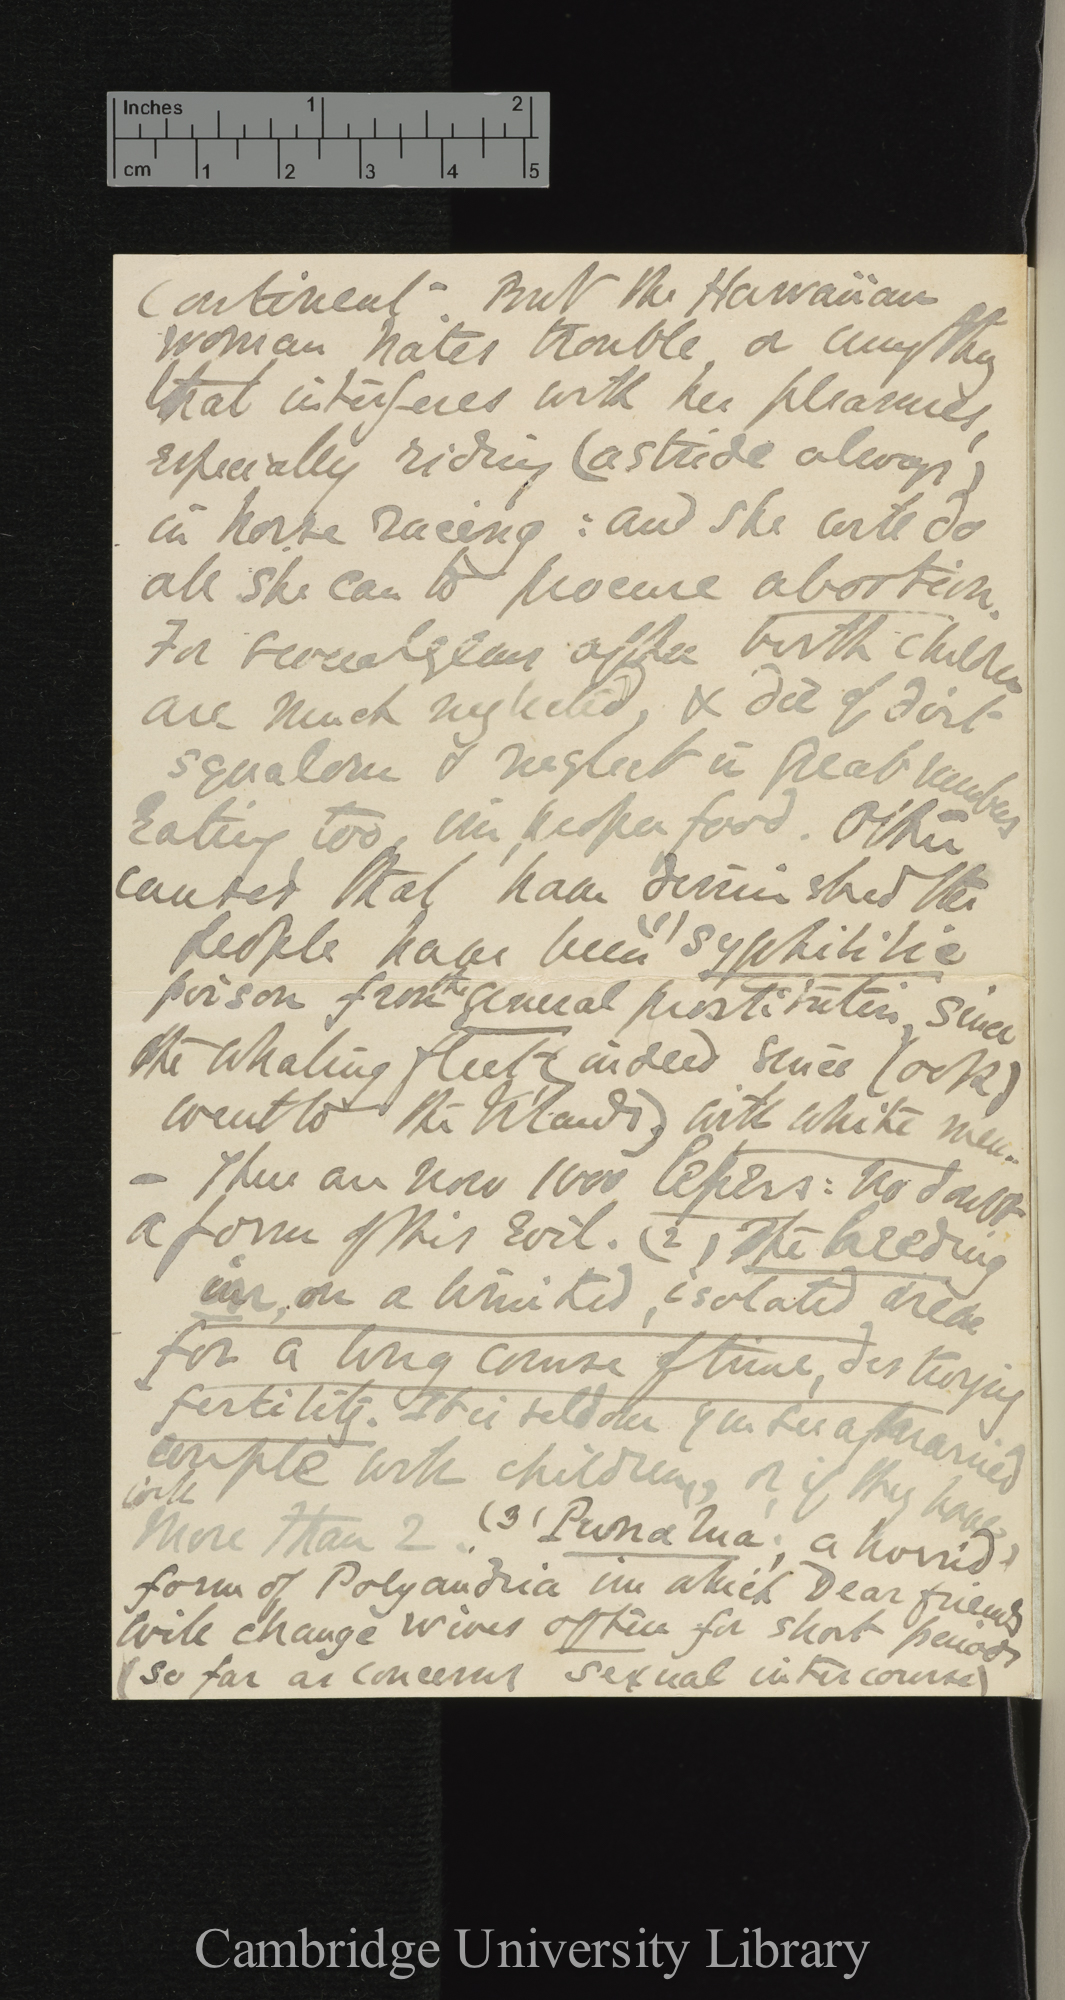 Inches 1 2
cm 1 2 3 4 5
Continent". But the Hawaiian
woman hates trouble, or anything
that interferes with her pleasures,
especially riding (astride always)
in horse racing: and she will do
all she can to procure abortion.
For several years after birth children
are much neglected, & die of dirt
squalor & neglect in great numbers
Eating too, improper food. Other
causes that have diminished the
people have been (1) syphilitic
poison from the general prostitution, since
the whaling fleet (indeed since Cook)
went to the Islands) with white men.
- There are now 1000 lepers: no doubt
a form of this Evil. (2) The breeding
in, on a limited, isolated area
for a long course of time, destroying
fertility. It is seldom you see a married
couple with children, or, if they have,
with
more than 2. (3) Punalua; a horrid
form of Polyandria in which Dear friends
will change wives often for short periods
(so far as concerns sexual intercourse)
Cambridge University Library